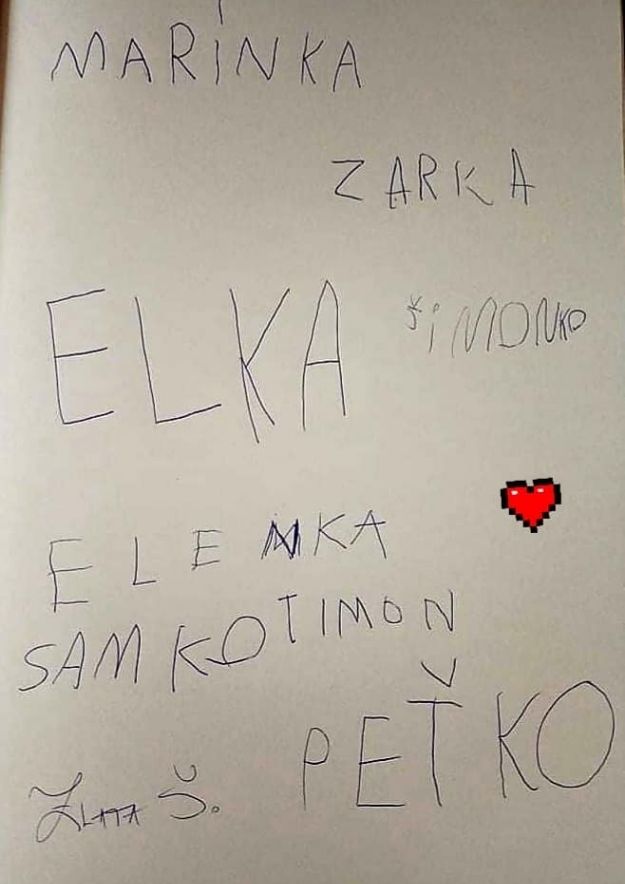 MARÍNKA
ZARKA
ELKA
ŠiMONKO
ELENKA
SAMKO TIMON
PEŤKO
ZLATA Š.